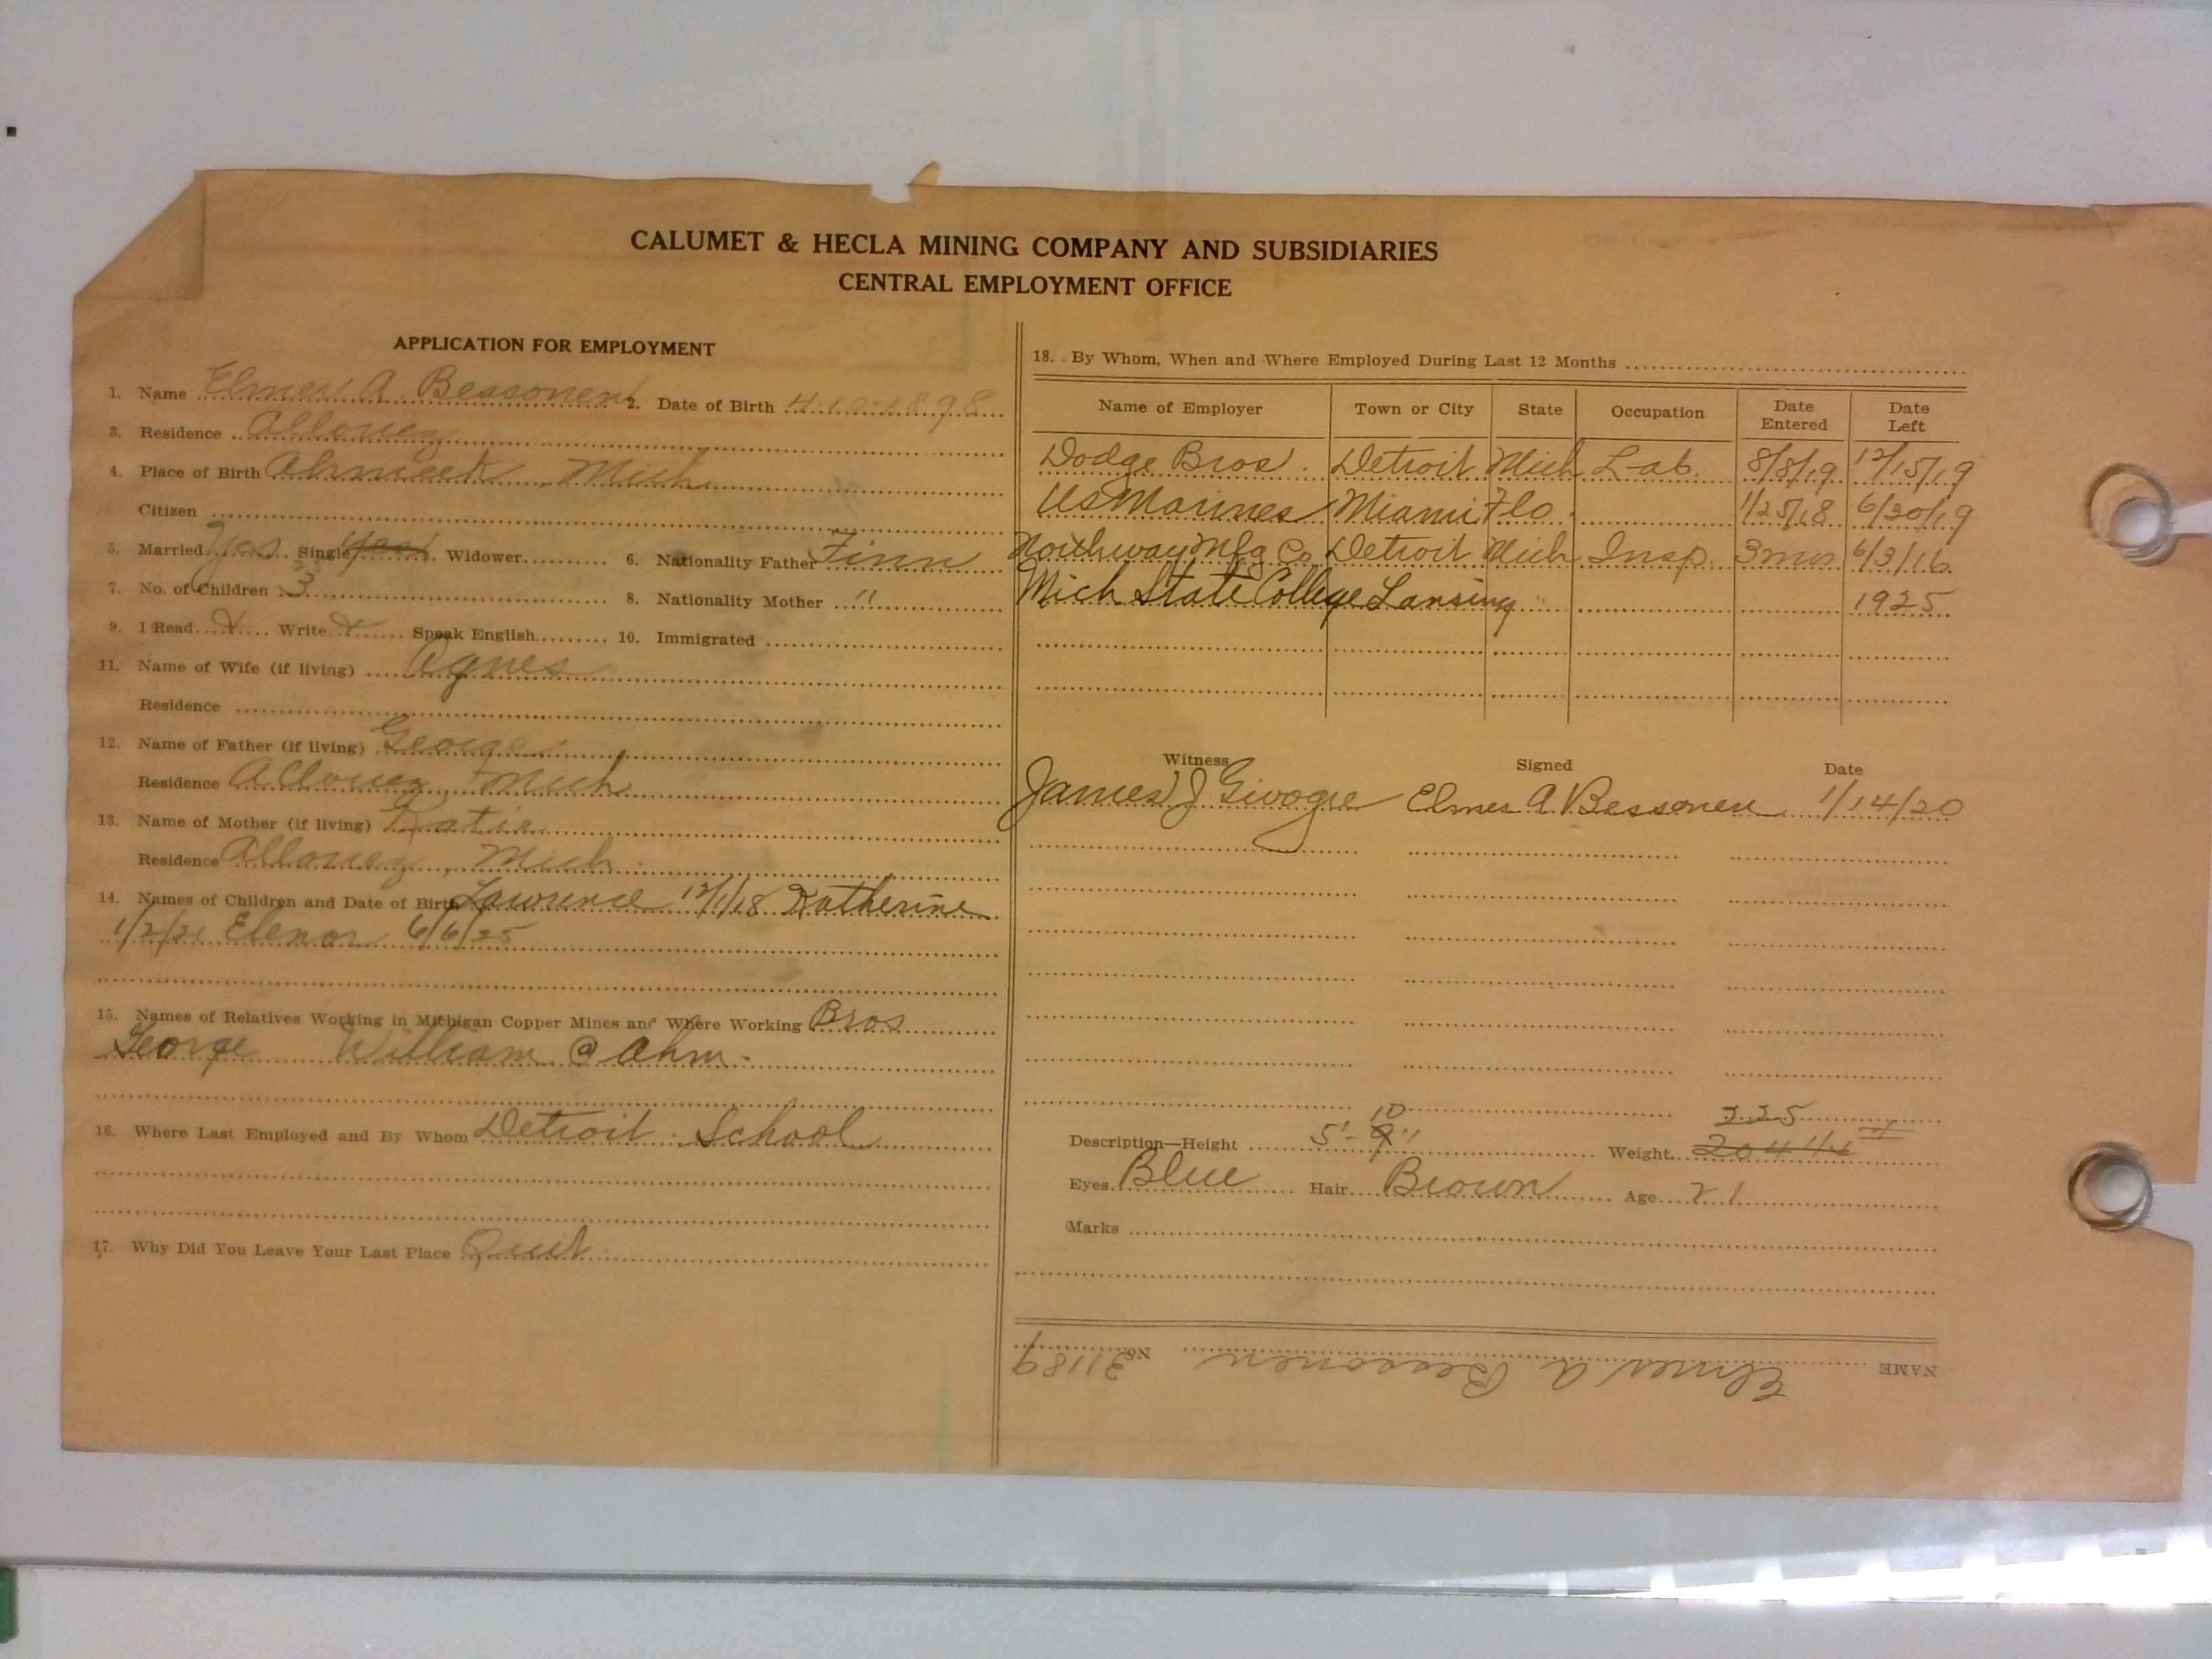 CALUMET & HECLA MINING COMPANY AND SUBSIDIARIES
CENTRAL EMPLOYMENT OFFICE
APPLICATION FOR EMPLOYMENT
1. Name Elmer A. Bessonen 2. Date of Birth 4-10-1898
3. Residence Allouez
4. Place of Birth Ahmeek, Mich.
Citizen
5. Married Yes Single Yes Widower 6. Nationality Father Finn
7. No. of Children 3 8. Nationality Mother "
9. I Read X Write X Speak English 10. Immigrated
11. Name of Wife (if living) Agnes
Residence
12. Name of Father (if living) George
Residence Allouez Mich
13. Name of Mother (if living) Katie
Residence Allouez, Mich.
14. Names of Children and Date of Birth Lawrence 12/1/18 Katherine
1/2/21 Elenor 6/6/25
15. Names of Relatives Working in Michigan Copper Mines and Where Working Bros
George William @ Ahm.
16. Where Last Employed and By Whom Detroit School
17. Why Did You Leave Your Last Place Quit
18. By Whom, When and Where Employed During Last 12 Months
Name of Employer Town or City State Occupation Date Entered Date Left
Dodge Bros. Detroit Mich Lab. 8/8/19 12/15/19
US Marines Miami Flo. 1/25/18 6/30/19
Northway Mfg Co Detroit Mich Insp. 3 mos 6/3/16
Mich State College Lansing " 1925
Witness Signed Date
James J Elmer A. Bessonen 1/14/20
10 225
Description—Height 5'-9" Weight 204 1/4 #
Eyes Blue Hair Brown Age 21
Marks
NAME Elmer A Bessonen No. 31189